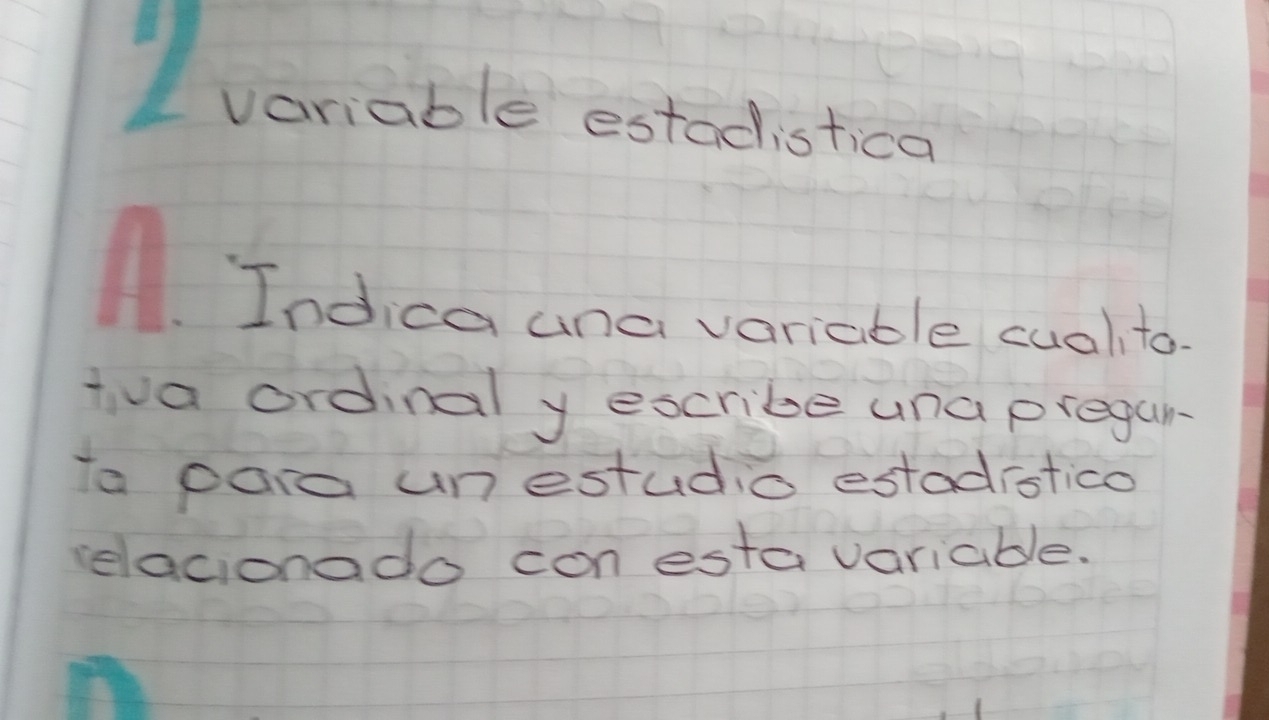 2 variable estadistica
A. Indica una variable cualita-
tiva ordinal y escribe una pregun-
ta para un estudio estadistico
relacionado con esta variable.